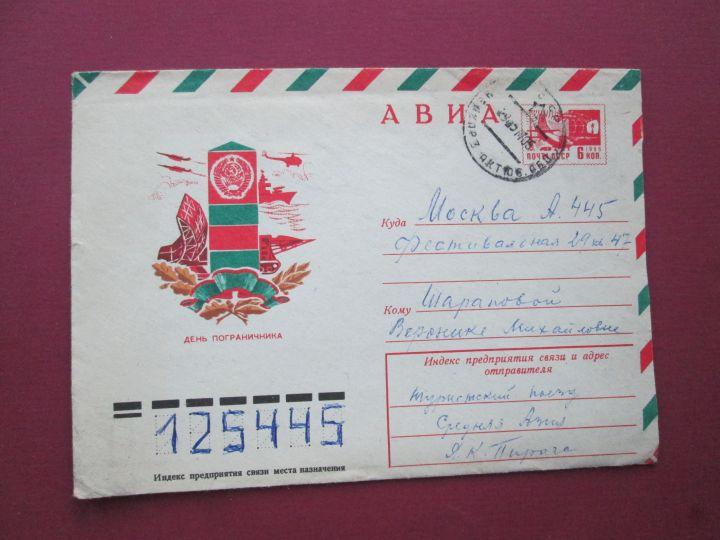 АВИА
ПОЧТА СССР 1966 6 КОП.
ДЕНЬ ПОГРАНИЧНИКА
Куда Москва А. 445
Фестивальная 29 кв 47
Кому Шараповой
Веронике Михайловне
Индекс предприятия связи и адрес
отправителя
Туристский поезд
Средняя Азия
125445
Индекс предприятия связи места назначения